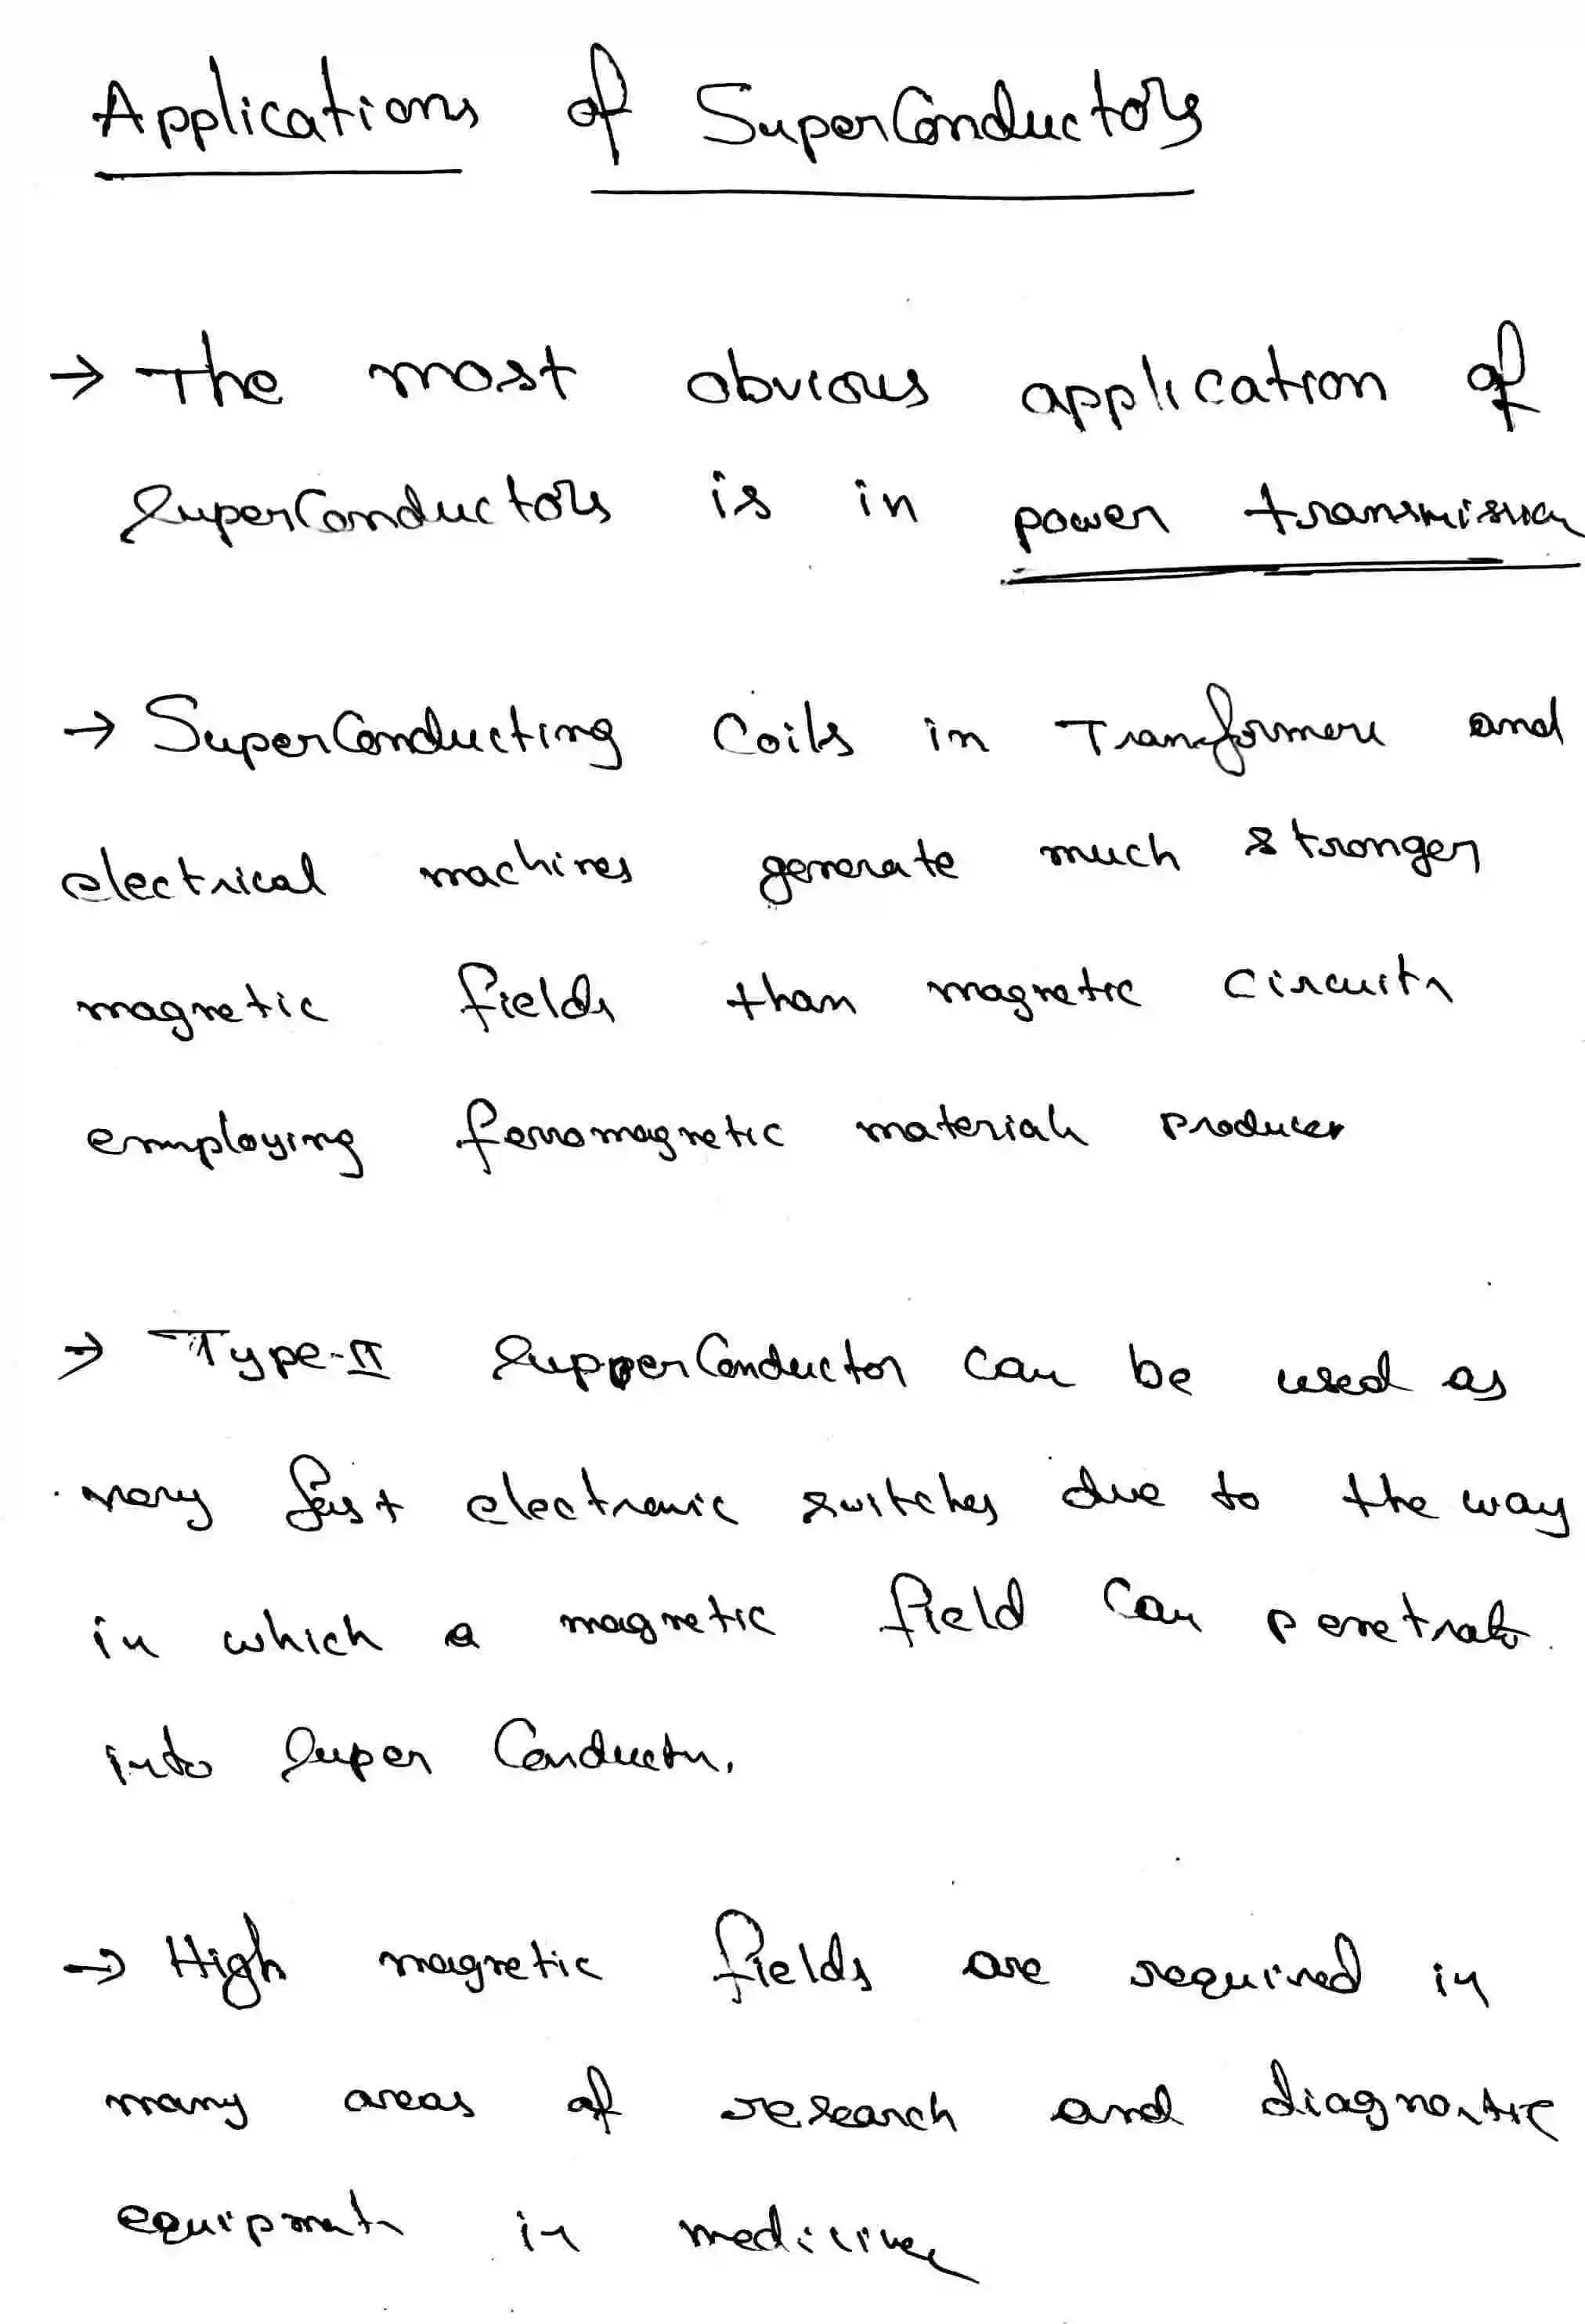 Applications of SuperConductors
→ The most obvious application of
SuperConductors is in power transmission
→ SuperConducting Coils in Transformers and
electrical machines generate much stronger
magnetic fields than magnetic circuits
employing ferromagnetic materials produces
→ Type-II SupperConductor can be used as
very fast electronic switches due to the way
in which a magnetic field can penetrate
into Super Conductor.
→ High magnetic fields are required in
many areas of research and diagnostic
equipments in medicines